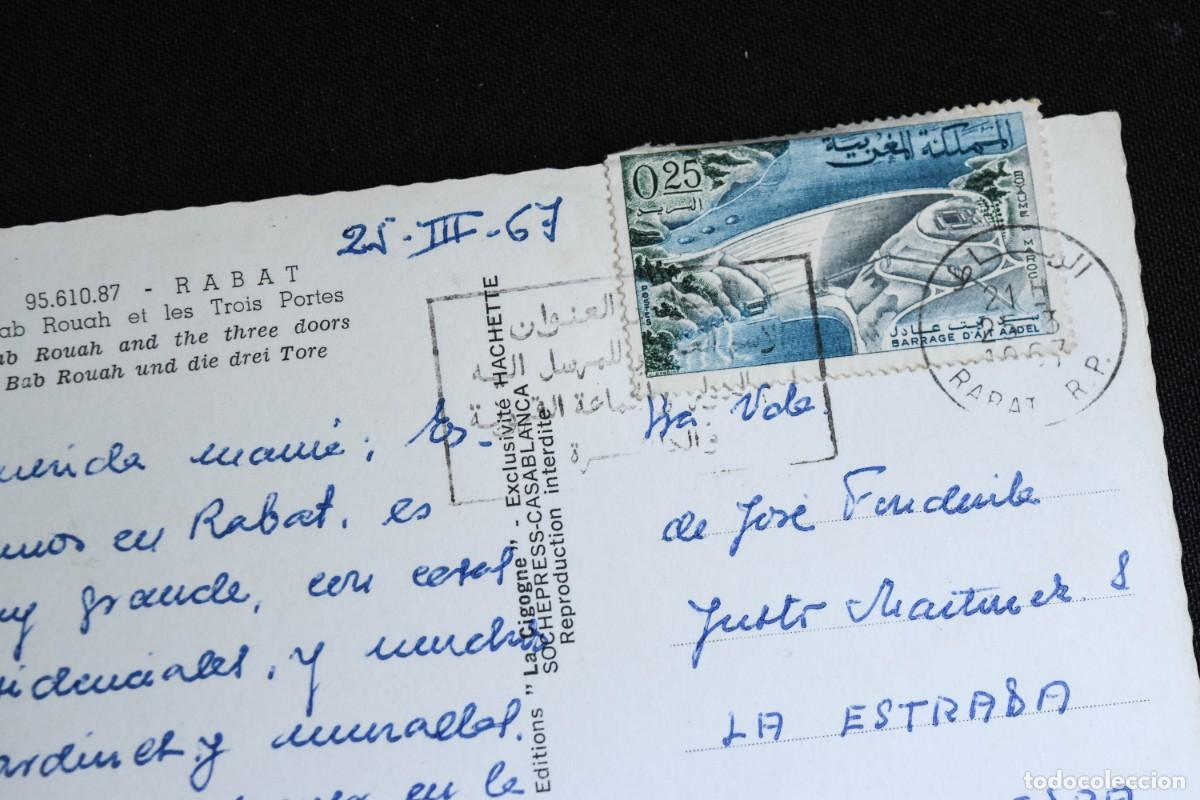 25-III-67
95.610.87 - RABAT
ab Rouah et les Trois Portes
ab Rouah and the three doors
Bab Rouah und die drei Tore
المملكة المغربية
0.25
البريد
ROYAUME DU MAROC
سد آيت عادل
BARRAGE D'AIT AADEL
الرباط
21
3
1967
RABAT R.P.
العنوان
للمرسل إليه
Editions " La Cigogne " - Exclusivité HACHETTE
SOCHEPRESS-CASABLANCA
Reproduction interdite
uerida mamá; Es-
amos en Rabat, es
uy grande, con casas
sidenciales, y muchos
ardines y murallas.
en la
Sra Vda.
de José Fondevila
Justo Martinez 8
LA ESTRADA
todocoleccion